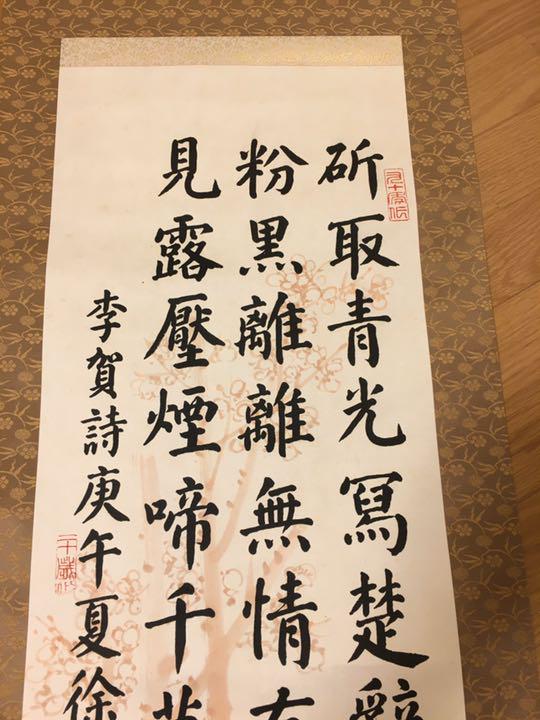 斫取青光寫楚辭
粉黑離離無情有
見露壓煙啼千
李賀詩庚午夏徐